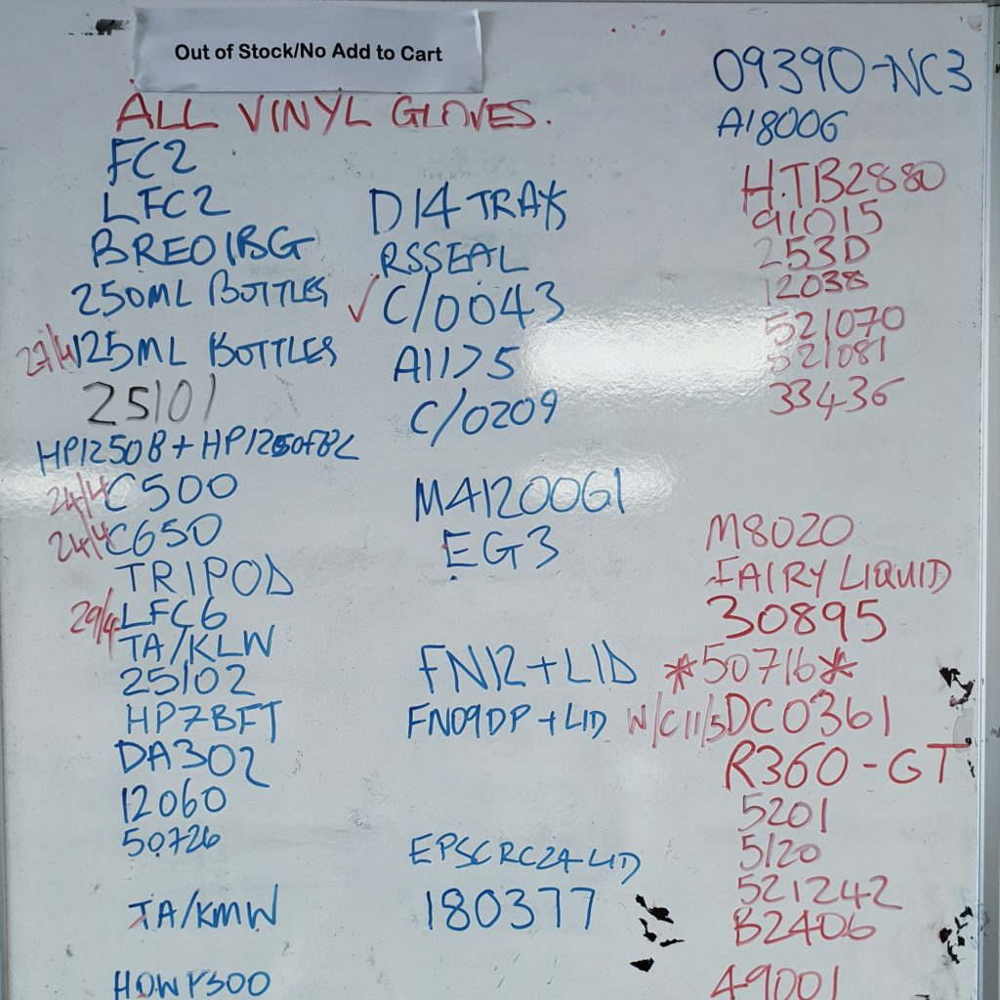 Out of Stock/No Add to Cart
ALL VINYL GLOVES.
FC2
LFC2
BREO1BG
250ML BOTTLES
27/4 125ML BOTTLES
25101
HP1250B + HP1250FBL
24/4 C500
24/4 C650
TRIPOD
29/4 LFC6
TA/KLW
25102
HP7BFT
DA302
12060
50726
TA/KMW
D14 TRAYS
RSSEAL
✓ C/0043
A1175
C/0209
M41200G1
EG3
FN12+LID
FN09DP + LID
EPSCRC24 LID
180377
09390-NC3
A18006
HTB2880
91015
253D
12038
521070
521081
33436
M8020
FAIRY LIQUID
30895
*50716*
W/C 11/5 DC0361
R360-GT
5201
5120
521242
B2406
49001